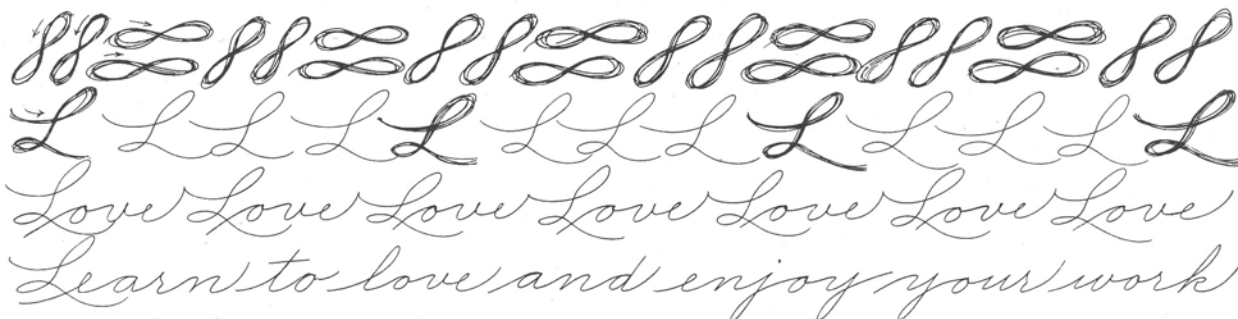 L L L L L L L L L L L L L
Love Love Love Love Love Love Love
Learn to love and enjoy your work